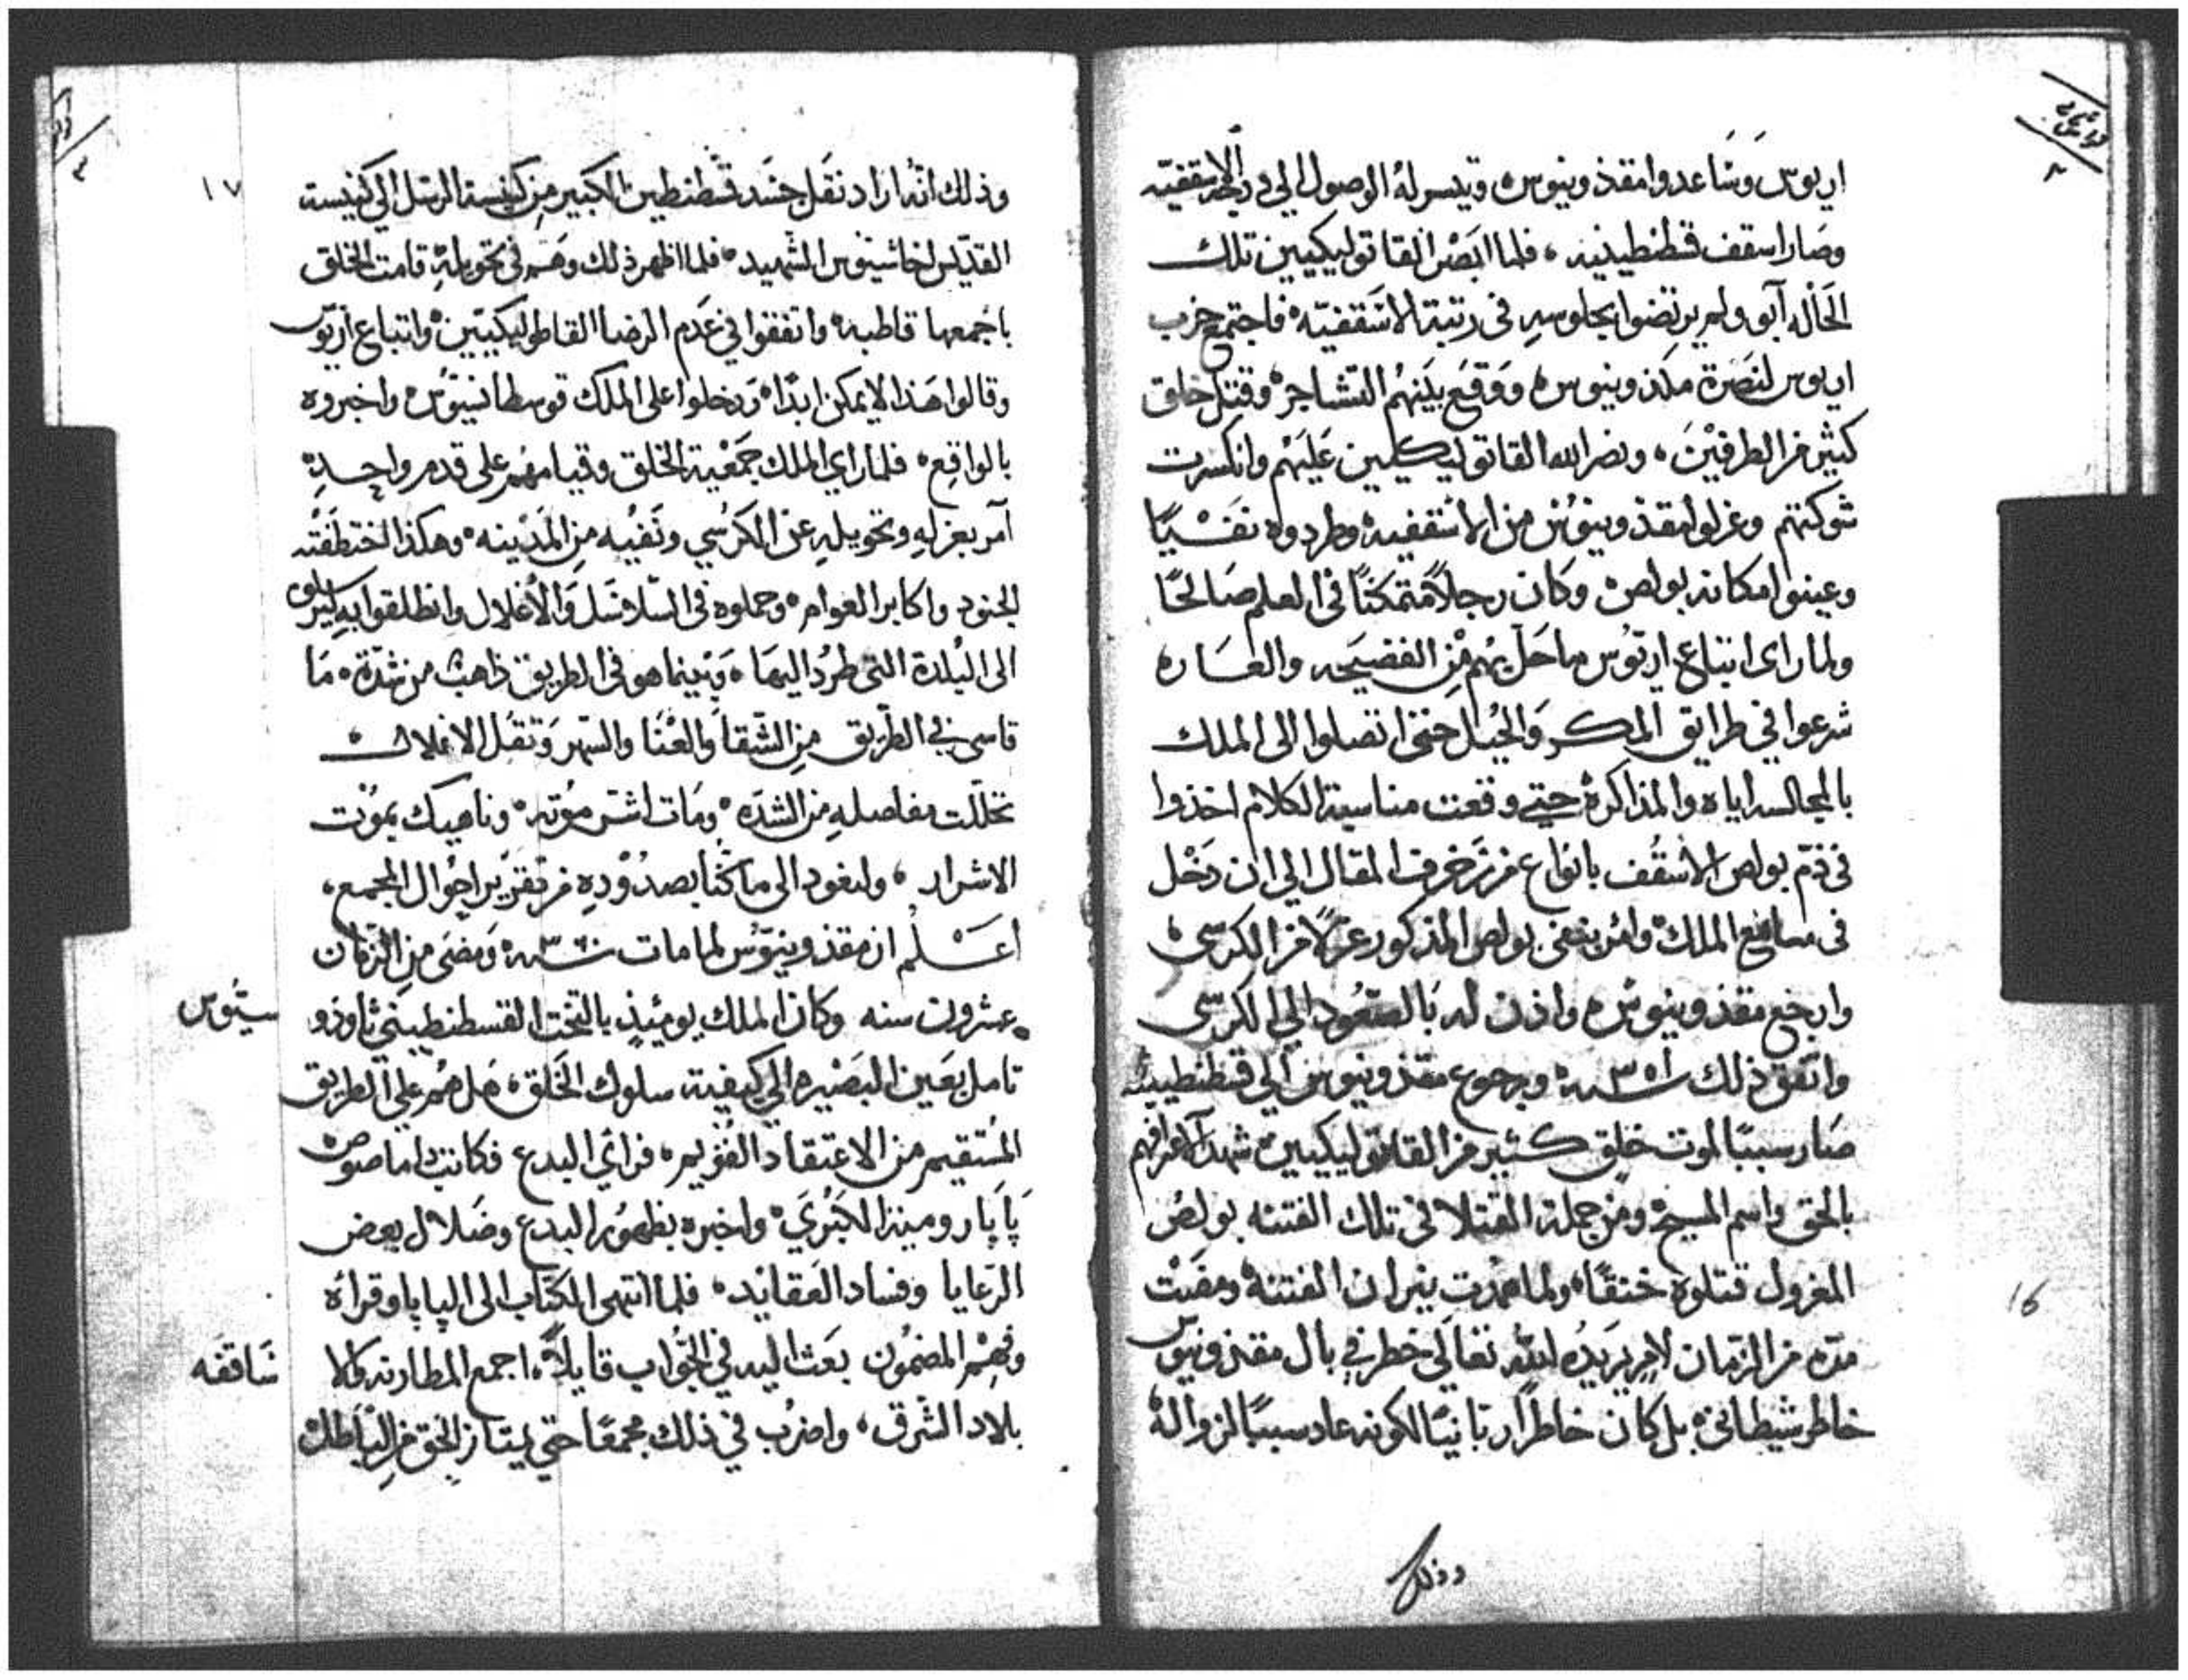 اريوس وساعدوا مقذونيوس وتيسر له الوصول الي درجة الاسقفيه
وصار اسقف قسطنطينيه، فلما ابصر القاتوليكيين تلك
الحاله آبو ولم يرتضوا بجلوسه في رتبة الاسقفيّه فاجتمع حزب
اريوس لنصرة مكذونيوس ووقع بينهم التشاجر وقتل خلق
كثير من الطرفين، ونصر الله القاتوليكيين عليهم وانكسرت
شوكتهم وعزلوا مقذونيوس من الاسقفيه وطردوه نفسيًا
وعينوا مكانه بولص وكان رجلاً متمكنًا في العلم صالحًا
ولما راى اتباع اريوس ما حل بهم من الفضيحه والعاره
شرعوا في طرايق المكر والحيل حتى اتصلوا الى الملك
بالمجالس اياه والمذاكرة حتي وقعت مناسبة الكلام اخذوا
في ذمّ بولص الاسقف بانواع من زخرف المقال الي ان دخل
في مسامع الملك وامر بنفى بولص المذكور عزلاً من الكرسى
وارجع مقذونيوس واذن له بالصعود الي الكرسى
واتفق ذلك سنة ٣٥١ وبرجوع مقذونيوس الي قسطنطينيه
صار سببًا لموت خلق كثير من القاتوليكيين شهدآ لاقرارهم
بالحق واسم المسيح ومن جملة القتلا في تلك الفتنه بولص
المعزول قتلوه خنقًا ولما همدت نيران الفتنة ومضت
مدة من الزمان لامر يريده الله تعالى خطر في بال مقذونيوس
خاطر شيطاني بل كان خاطرًا ربانيًا لكونه عاد سببًا لزواله
وذلك
16
١٧
وذلك انه اراد نقل جسد قسطنطين الكبير من كنيسة الرسل الي كنيسة
القديس اخاشيوس الشهيد فلما اظهر ذلك وهم في تحويله قامت الخلق
باجمعها قاطبه واتفقوا في عدم الرضا القاطوليكيين واتباع اريوس
وقالوا هذا لا يمكن ابدًا ودخلوا على الملك قوسطانسيوس واخبروه
بالواقع فلما راي الملك جمعية الخلق وقيامهم على قدم واحدة
آمر بعزله وتحويله عن الكرسي ونفيه من المدينه وهكذا اختطفته
الجنود واكابر العوام وحملوه في السلاسل والأغلال وانطلقوا به
الى البلدة التى طرد اليها، وبينما هو في الطريق ذاهب من شدة ما
قاسى في الطريق من الشقا والعنا والسهر وثقل الاغلال
تخللت مفاصله من الشده ومات اشر موته وناهيك بموت
الاشرار، ولنعود الى ما كنا بصدوده من تقرير احوال المجمع،
اعلم ان مقذونيوس لما مات سنة ٣٦٠ ومضى من الزمان
عشرون سنه وكان الملك يومئذ بالتخت القسطنطيني ثاوذو
سيوس
تامل بعين البصيره الي كيفية سلوك الخلق هل هم على الطريق
المستقيم من الاعتقاد القويم فرائ البدع فكاتب داماصوص
پاپا رومية الكبرى واخبره بظهور البدع وضلال بعض
الرعايا وفساد العقايد فلما انتهى الكتاب الى الپاپا وقرأه
وفهم المضمون بعث اليه في الجواب قايلاً اجمع المطارنه والا
ساقفه
بلاد الشرق، واضرب في ذلك مجمعًا حتي يمتاز الحق من الباطل